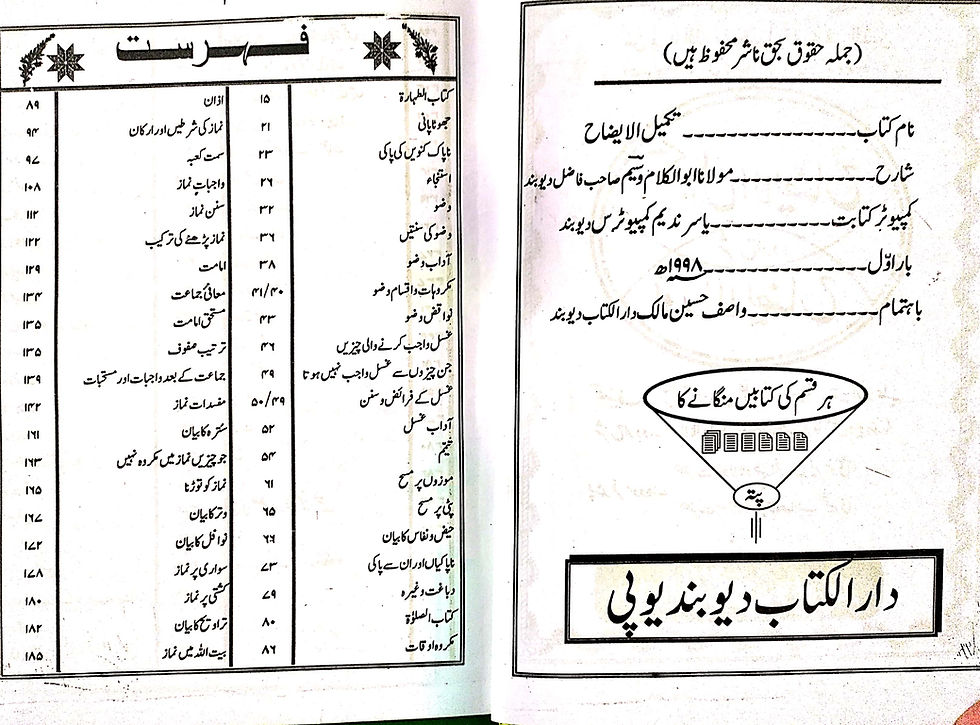 (جملہ حقوق بحق ناشر محفوظ ہیں)
نام کتاب ـــــــــــــ تکمیل الایضاح
شارح ـــــــــــــ مولانا ابوالکلام وسیم صاحب فاضل دیوبند
کمپیوٹر کتابت ـــــــــــــ یاسر ندیم کمپیوٹرس دیوبند
بار اوّل ـــــــــــــ ۱۹۹۸ھ
باہتمام ـــــــــــــ واصف حسین مالک دارالکتاب دیوبند
ہر قسم کی کتابیں منگانے کا
پتہ
دارالکتاب دیوبند یوپی
فہرست
کتاب الطہارۃ ۱۵
جھوٹا پانی ۲۱
ناپاک کنویں کی پاکی ۲۳
استنجاء ۲۶
وضو ۳۲
وضو کی سنتیں ۳۶
آداب وضو ۳۸
مکروہات واقسام وضو ۴۱/۴۰
نواقض وضو ۴۳
غسل واجب کرنے والی چیزیں ۴۶
جن چیزوں سے غسل واجب نہیں ہوتا ۴۹
غسل کے فرائض وسنن ۵۰/۴۹
آداب غسل ۵۲
تیمّم ۵۴
موزوں پر مسح ۶۱
پٹی پر مسح ۶۵
حیض ونفاس کا بیان ۶۶
ناپاکیاں اور ان سے پاکی ۷۳
دباغت وغیرہ ۷۹
کتاب الصلوٰۃ ۸۰
مکروہ اوقات ۸۶
اذان ۸۹
نماز کی شرطیں اور ارکان ۹۴
سمت کعبہ ۹۷
واجبات نماز ۱۰۸
سنن نماز ۱۱۲
نماز پڑھنے کی ترکیب ۱۲۲
امامت ۱۲۹
معافیٔ جماعت ۱۳۴
مستحق امامت ۱۳۵
ترتیب صفوف ۱۳۵
جماعت کے بعد واجبات اور مستحبات ۱۳۹
مفسدات نماز ۱۴۲
سترہ کا بیان ۱۶۱
جو چیزیں نماز میں مکروہ نہیں ۱۶۳
نماز کو توڑنا ۱۶۵
وتر کا بیان ۱۶۷
نوافل کا بیان ۱۷۲
سواری پر نماز ۱۷۸
کشتی پر نماز ۱۸۰
تراویح کا بیان ۱۸۲
بیت اللہ میں نماز ۱۸۵